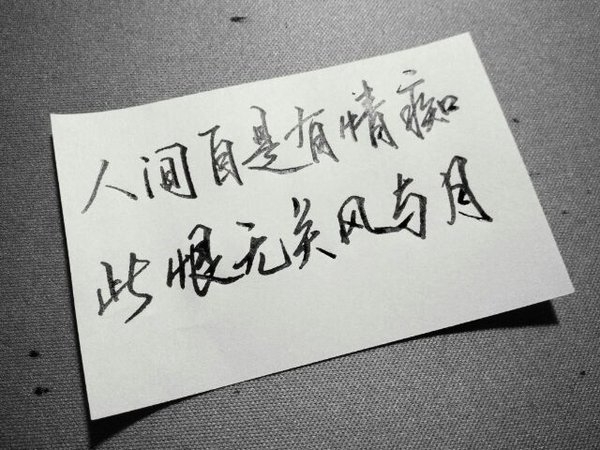 人间自是有情痴
此恨无关风与月